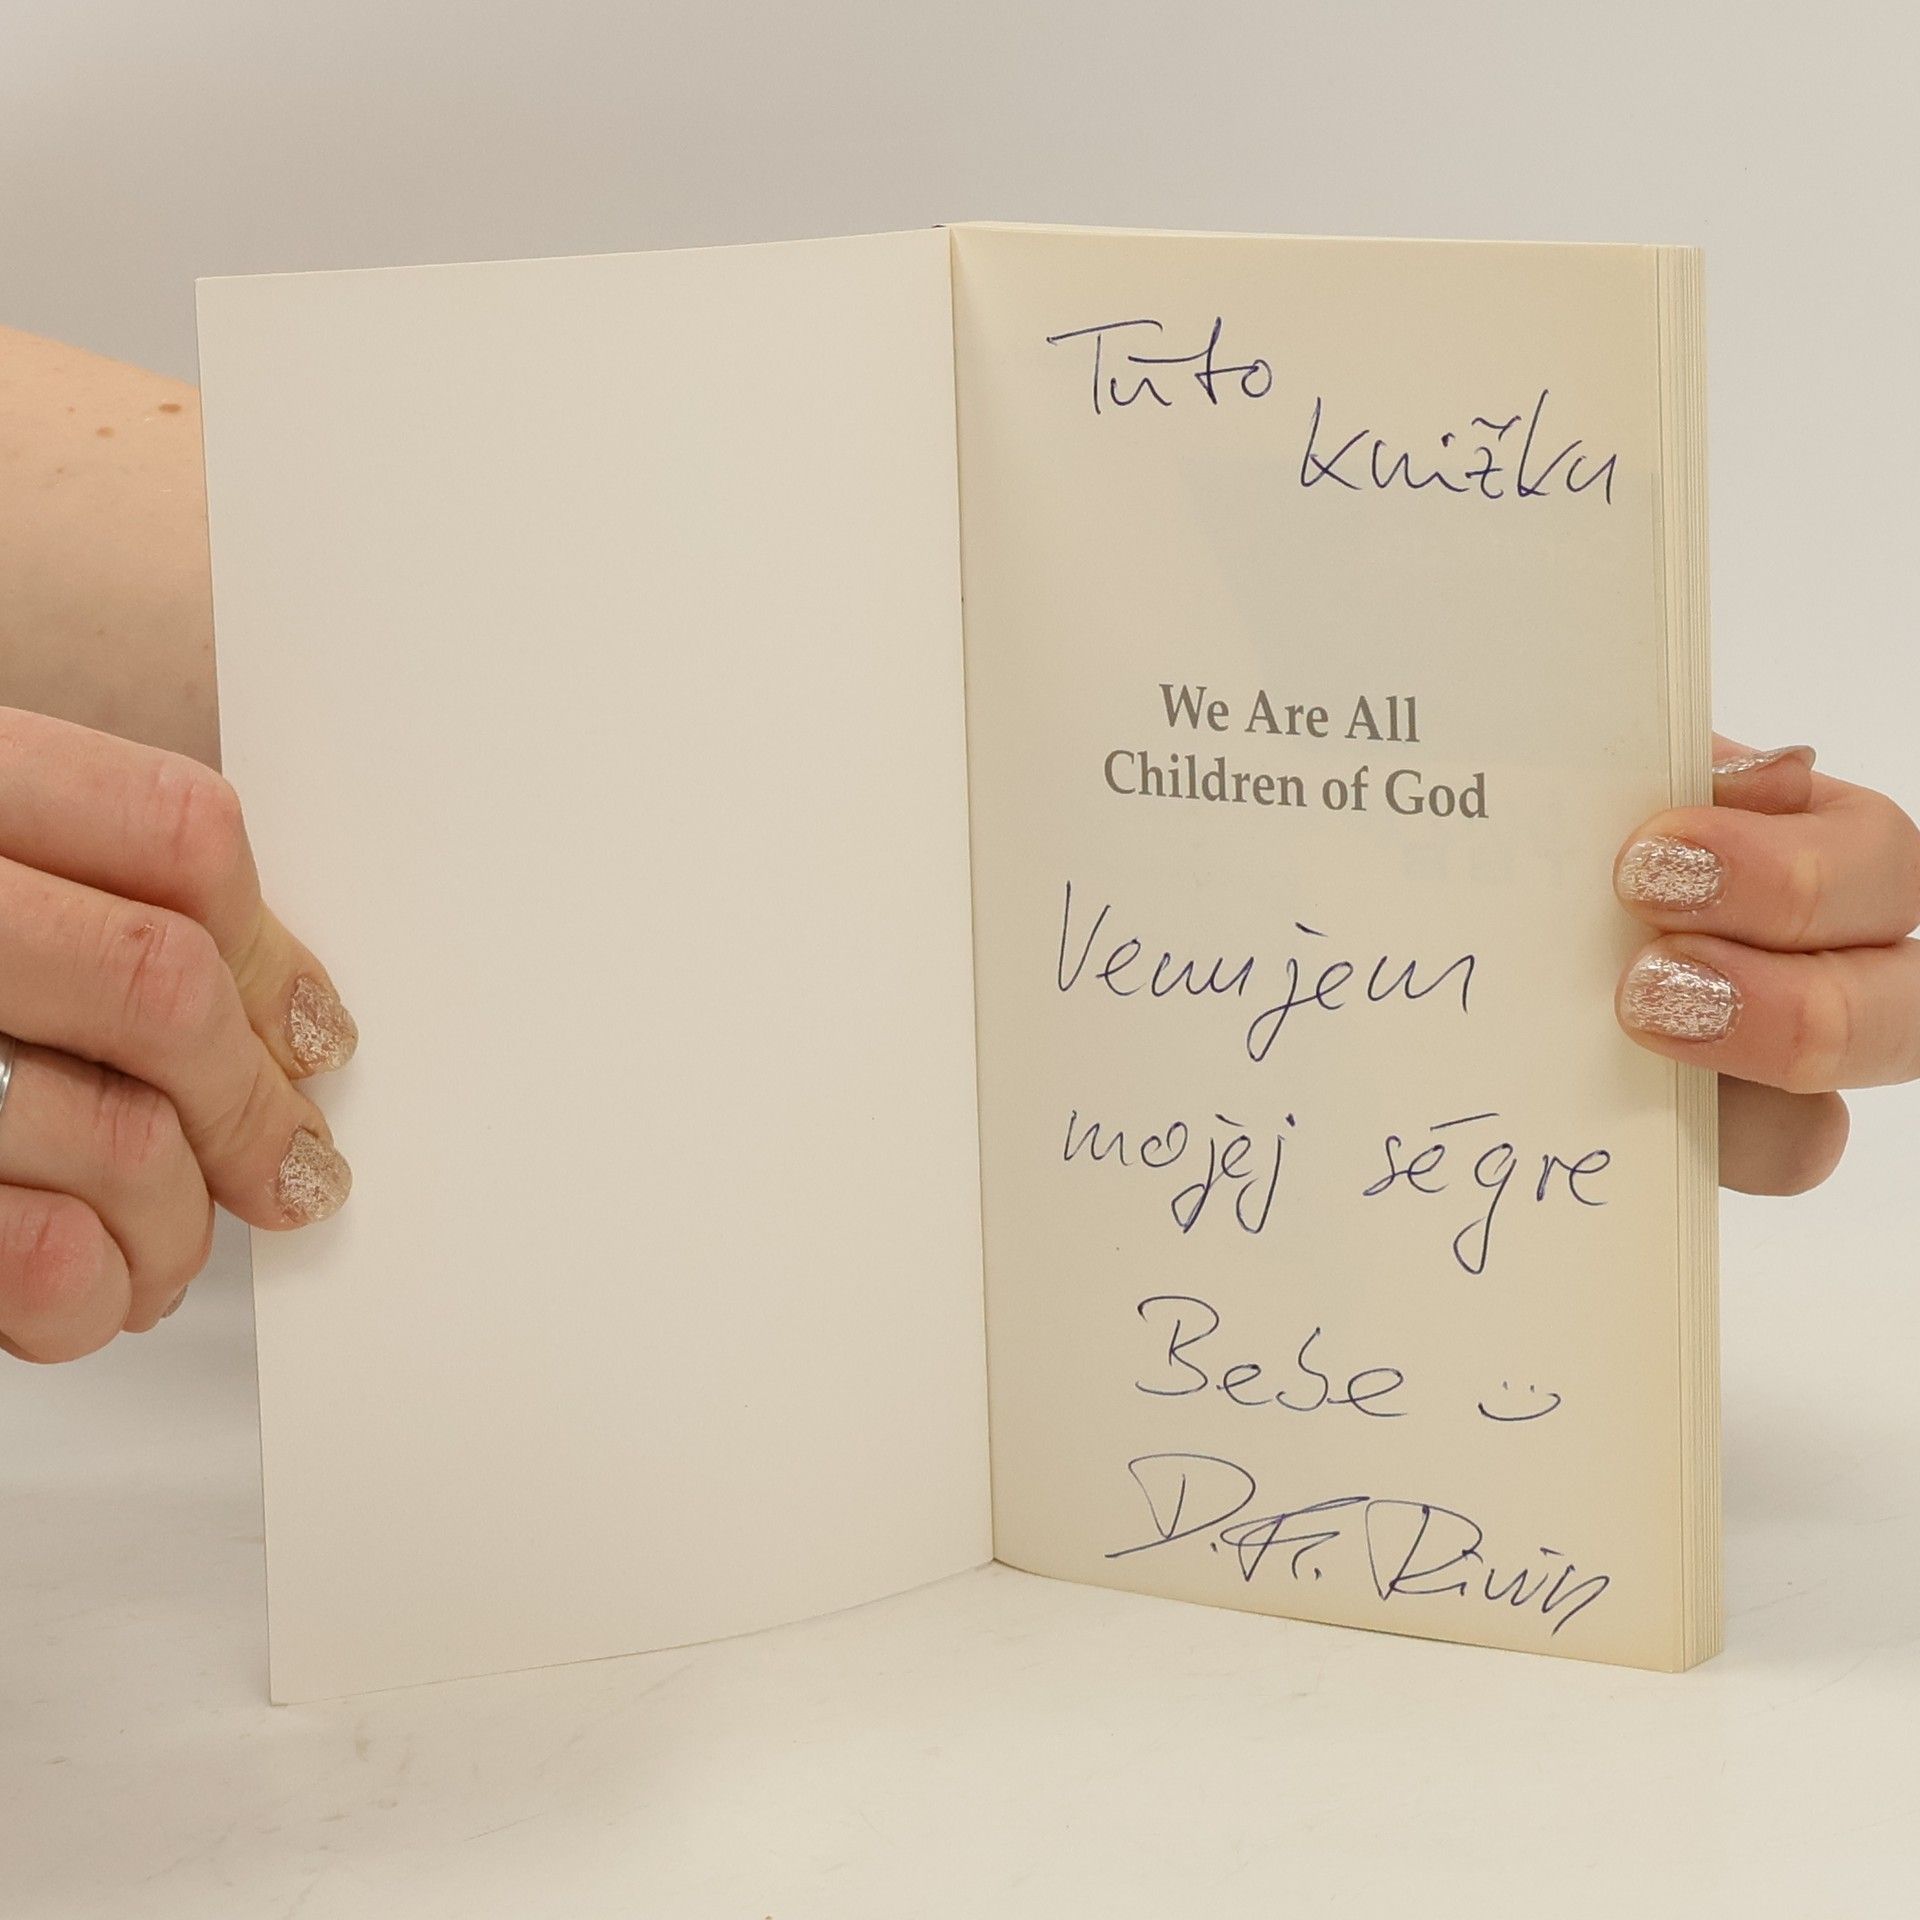 Túto
knižku
We Are All
Children of God
Venujem
mojej ségre
Bebe :)
D.